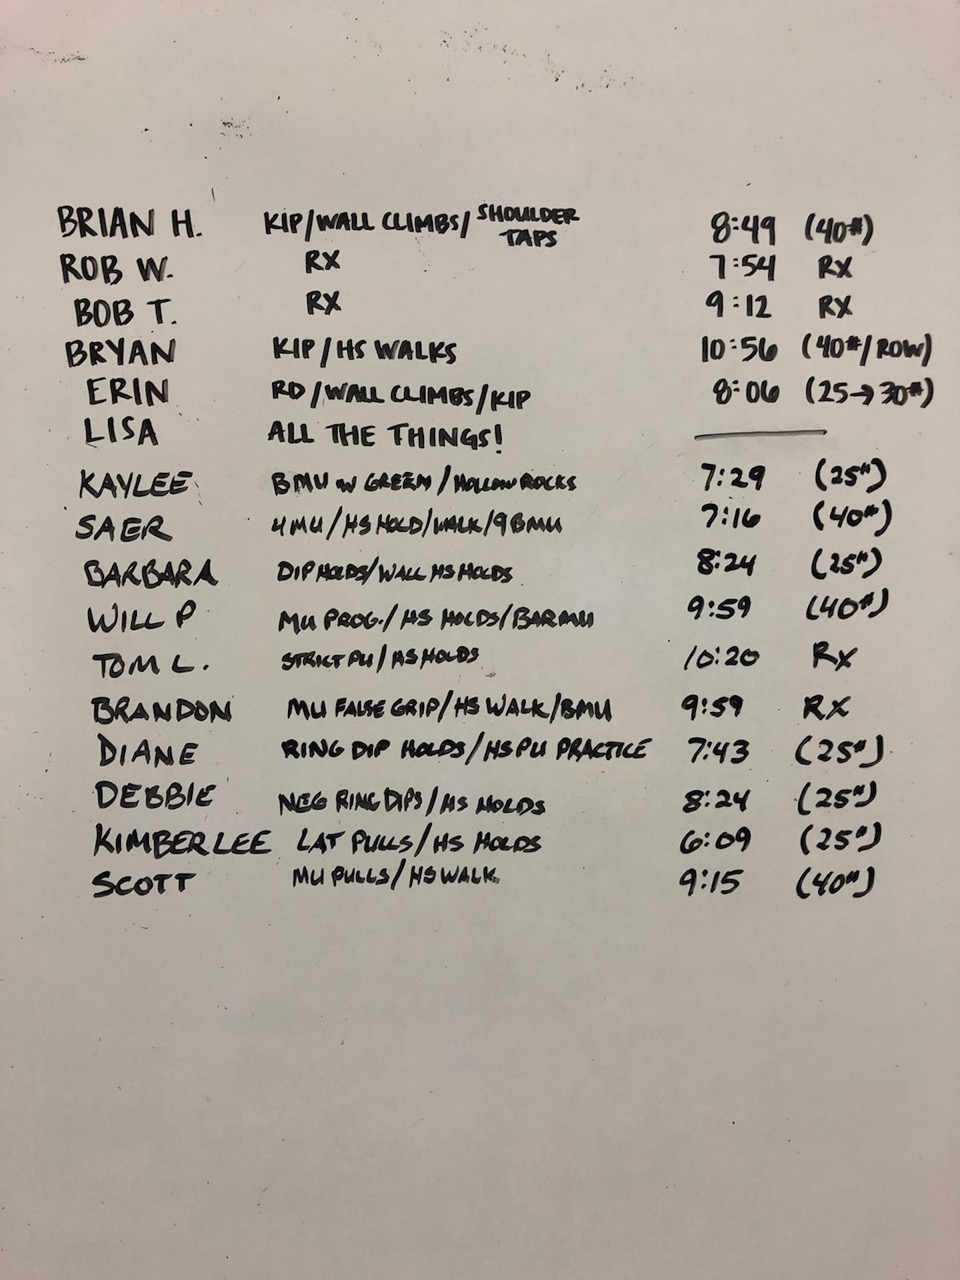 BRIAN H. KIP/WALL CLIMBS/SHOULDER TAPS 8:49 (40#)
ROB W. RX 7:54 RX
BOB T. RX 9:12 RX
BRYAN KIP/HS WALKS 10:56 (40#/ROW)
ERIN RD/WALL CLIMBS/KIP 8:06 (25→30#)
LISA ALL THE THINGS! —
KAYLEE BMU W GREEN/HOLLOW ROCKS 7:29 (25#)
SAER 4MU/HS HOLD/WALK/9BMU 7:16 (40#)
BARBARA DIP HOLDS/WALL HS HOLDS 8:24 (25#)
WILL P MU PROG./HS HOLDS/BARMU 9:59 (40#)
TOM L. STRICT PU/HS HOLDS 10:20 RX
BRANDON MU FALSE GRIP/HS WALK/BMU 9:59 RX
DIANE RING DIP HOLDS/HSPU PRACTICE 7:43 (25#)
DEBBIE NEG RING DIPS/HS HOLDS 8:24 (25#)
KIMBERLEE LAT PULLS/HS HOLDS 6:09 (25#)
SCOTT MU PULLS/HS WALK 9:15 (40#)